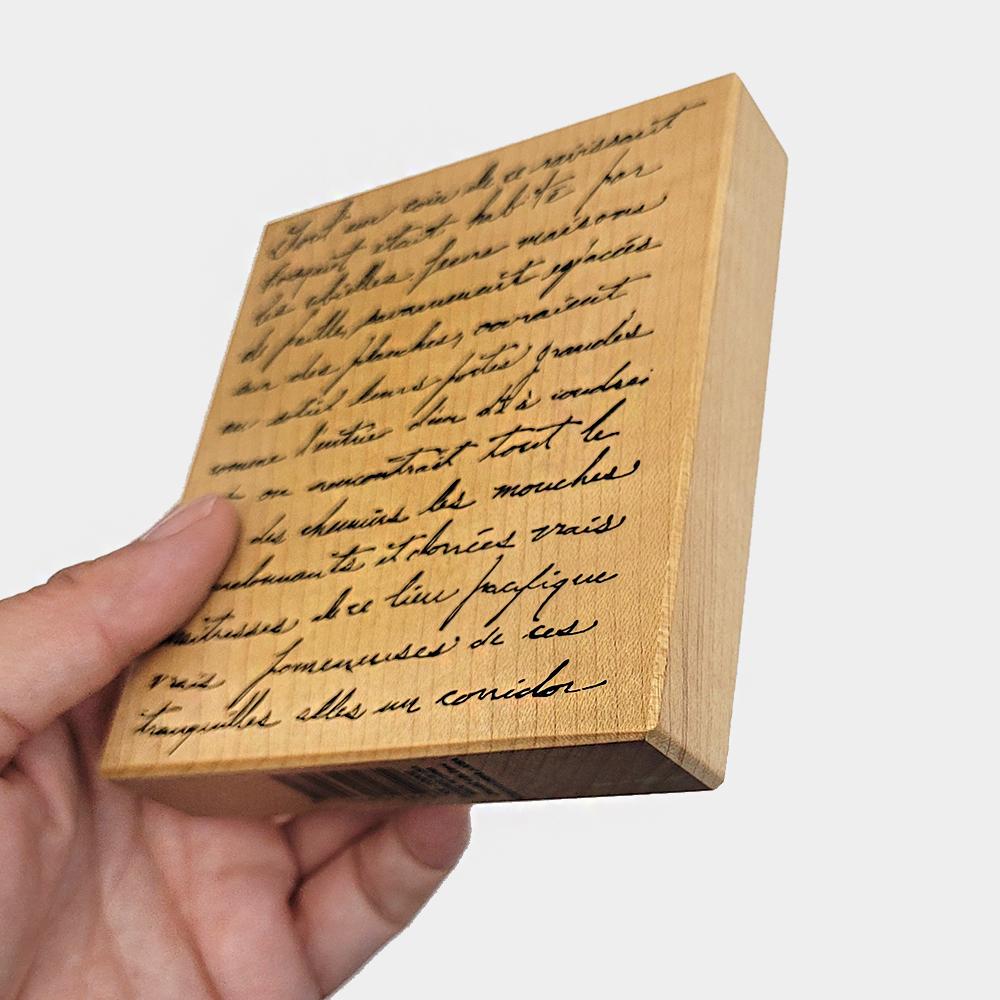 Tout un coin de ce ravissant
bosquet était habité par
les abeilles. leurs maisons
de paille, espacées
sur des planches, ouvraient
au soleil leurs portes grandes
comme l'entrée d'un dé à
on rencontrait tout le
des chemins les mouches
et dorées vrais
maitresses de ce lieu pacifique
vrais de ces
tranquilles alles un corridor